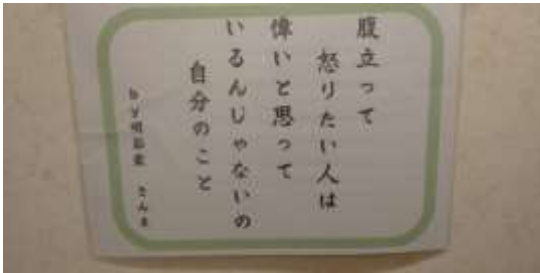 腹立って
怒りたい人は
偉いと思って
いるんじゃないの
自分のこと
by明石家 さんま